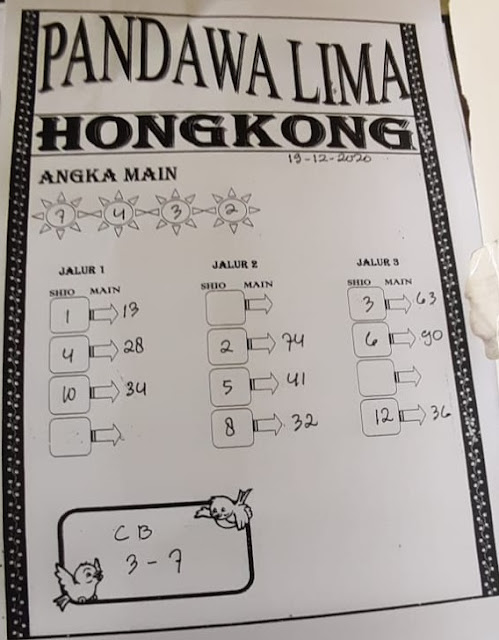 PANDAWA LIMA
HONGKONG
19-12-2020
ANGKA MAIN
7 4 3 2
JALUR 1
SHIO MAIN
1 13
4 28
10 34
JALUR 2
SHIO MAIN
2 74
5 41
8 32
JALUR 3
SHIO MAIN
3 63
6 90
12 36
CB
3 - 7